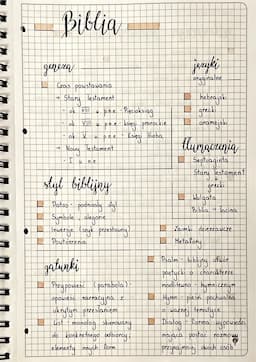 Biblia
geneza
Czas powstawania
→ Stary Testament
- ok VIII w p.n.e - Pięcioksiąg
- ok VIII w p.n.e - księgi prorockie
- ok V w p.n.e - Księga Hioba
→ Nowy Testament
- I w n.e
języki
oryginalne
hebrajski
grecki
aramejski
tłumaczenia
Septuaginta
Stary testament
↓
grecki
Wulgata
Biblia → łacina
styl biblijny
Patos - podniosły styl
Symbole, alegorie
Inwersje (szyk przestawny)
Powtórzenia
Zwroty
Metafory
gatunki
Przypowieść (parabola) -
opowieść narracyjna z
ukrytym przesłaniem
List - monolog skierowany
do konkretnego odbiorcy
elementy innych form
Psalm - biblijny utwór
poetycki o charakterze
modlitewno - hymnicznym
Hymn - pieśń pochwalna
o ważnej tematyce
Dialog - forma wypowiedzi
mająca postać rozmowy
przynajmniej dwóch osób